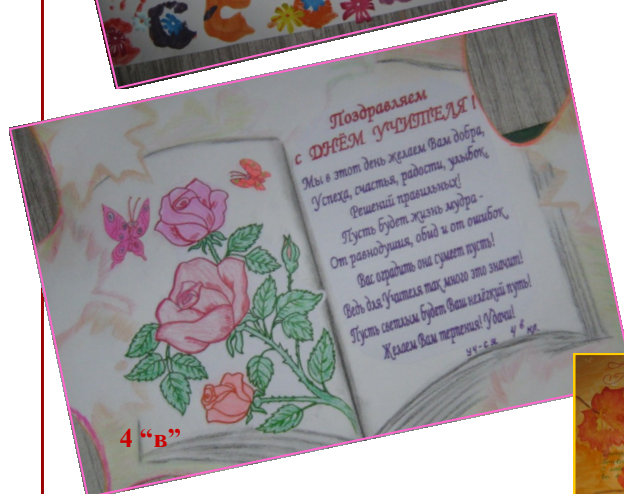 Поздравляем
с ДНЁМ УЧИТЕЛЯ !
Мы в этот день желаем Вам добра,
Успеха, счастья, радости, улыбок,
Решений правильных!
Пусть будет жизнь мудра -
От равнодушия, обид и от ошибок,
Вас оградить она сумеет пусть!
Ведь для Учителя так много это значит!
Пусть светлым будет Ваш нелёгкий путь!
Желаем Вам терпения! Удачи!
уч-ся 4 в кл.
4 “в”